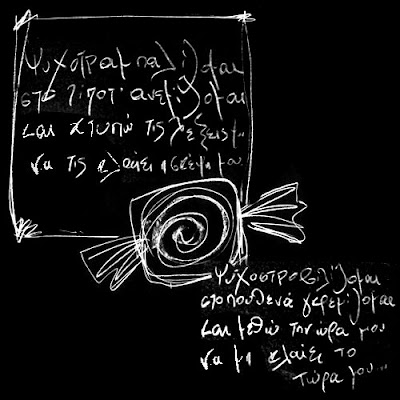 Ψυχοτραμπαλίζομαι
στο τίποτ' ανεμίζομαι
και χτυπώ τις λέξεις μ..
να τις κλαίει η σκέψη μου
Ψυχοστροβιλίζομαι
στο πουθενά γκρεμίζομαι
και μεθώ την ώρα μου
να μη κλαίει το
τώρα μου...